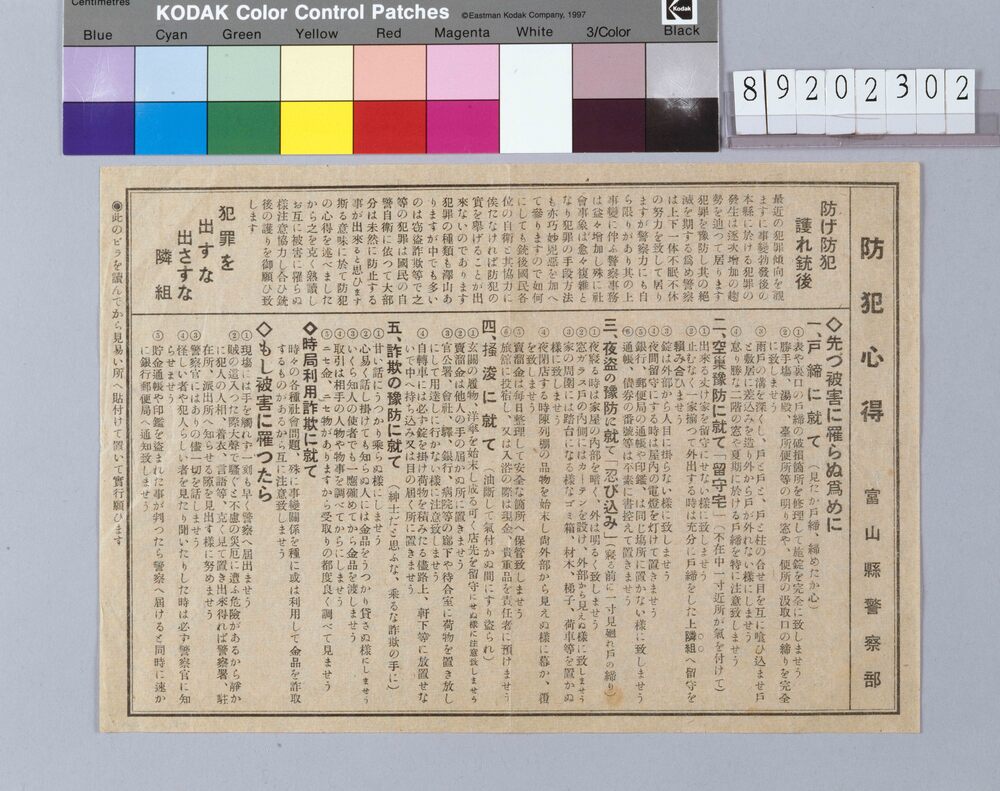 Centimetres
KODAK Color Control Patches
©Eastman Kodak Company, 1997
Kodak
Blue Cyan Green Yellow Red Magenta White 3/Color Black
8 9 2 0 2 3 0 2
防犯心得
富山縣警察部
防げ防犯
護れ銃後
最近の犯罪傾向を觀
ますに事變勃發後の
本縣に於ける犯罪の
發生は逐次增加の趨
勢を辿つて居ります
犯罪を豫防し其の絕
滅を期する爲め警察
は上下一体不眠不休
の努力を致して居り
ますが警察力にも自
ら限りがあり其の上
事變に伴ふ事犯は
は益々增加し殊に社
會事象は愈々複雜と
なり犯罪の手段方法
も亦巧妙兇惡を加へ
て參りますので如何
にしても銃後國民各
位の自衛と其協力に
俟たなければ防犯の
實を擧げることが出
來ないのであります
犯罪の種類も澤山あ
りますが中でも多い
のは窃盗詐欺等で之
等の犯罪は國民の自
警自衛に依つて大部
分は未然に防止する
事が出來ると思ひます
斯る意味に於て防犯
の心得を述べました
から之を克く熟讀し
お互に被害に罹らぬ
樣注意協力し合ひ銃
後の護りを御願ひ致
します
犯罪を
出すな
出さすな
隣組
◇先づ被害に罹らぬ爲めに
一、戸締に就て（見たか戸締、締めたか心）
①表や裏口の戸締の破損箇所を修理して施錠を完全に致しませう
②勝手場、湯殿、臺所便所等の明り窓や、便所の汲取口の締りを完全
に致しませう
③雨戸の溝を深くし、戸と戸と、戸と柱の合せ目を互に喰ひ込ませ戸
と敷居に差込みを造り外から戸が外れない樣にしませう
④怠り勝な二階の窓や夏期に於ける戸締を特に注意致しませう
二、空巢豫防に就て「留守宅」（不在中一寸近所が氣を付けて）
①出來る丈け家を留守にせない樣に致しませう
②止むなく一家揃つて外出する時は充分に戸締をした上隣組へ留守を
賴み合ひませう
③錠は外部から人目に掛らない樣に致しませう
④夜間留守にする時は屋內の電燈を灯けて置きませう
⑤銀行、郵便局の通帳や印鑑は同じ場所に置かない樣に致しませう
⑥通帳、債券の番號等は不素に書控へて置きませう
三、夜盗の豫防に就て「忍び込み」（寢る前に一寸見廻れ戸の締り）
①夜寢る時は家屋の內部を暗く、外は明るく致しませう
②窓ガラス戸の內側にはカーテンを設け、外部から見えぬ樣に致しませう
③家の周圍には踏台になる樣なゴミ箱、材木、梯子、荷車等を置かぬ
樣に致しませう
④夜閉店する時陳列棚の品物を始末し尙外部から見えぬ樣に幕か、覆
を致しませう
⑤賣溜金は每日整理して安全な箇所へ保管致しませう
⑥旅舘に投宿し、又は入浴の際は現金、貴重品を責任者に預けませう
四、掻浚に就て（油斷して氣付かぬ間にすり盗られ）
①玄關の履物、洋傘を始末し成る可く店先を留守にせぬ樣に注意致しませう
②賣溜金は他人の手の届かぬ所に置きませう
③官公署、會社、驛、銀行、病院等の廊下や待合室に荷物を置き放し
にして用達しに行かない樣に注意致しませう
④自轉車には必ず錠を掛け荷物を積みたる儘路上、軒下等に放置せな
いで中へ持ち込み又は目の届く所に置きませう
五、詐欺の豫防に就て（紳士だと思ふな、乘るな詐欺の手に）
①甘い話にうつかり乘らぬ樣しませう
②心易く話し掛けても知らぬ人には金品をうつかり貸さぬ樣にしませう
③いくら知人の使者でも一應確めてから金品を渡しませう
④取引は相手の人物や物事を調べてからにしませう
⑤ニセ金、ニセ物がありますから受取りの都度良く調べて見ませう
◇時局利用詐欺に就て
時々の各種社會問題、殊に事變關係を種に或は利用して金品を詐取
するものがあるから互に注意致しませう
◇もし被害に罹つたら
①現場には手を觸れず一刻も早く警察へ届出ませう
②賊の這入つた際大聲で騷ぐと不慮の災厄に遭ふ危險があるから靜か
に犯人の人相、衣着、言語等、克く見て置き出來得れば警察署、駐
在所、派出所へ知らせる隙を見出す樣に努めませう
③警察官にはありの儘に一切を話しませう
④怪しい者や犯人らしい者を見たり聞いたりした時は必ず警察官に知
らせませう
⑤貯金通帳や印鑑を盗まれた事が判つたら警察へ届けると同時に速か
に銀行郵便局へ通知致しませう
◉此のビラを讀んでから見易い所へ貼付けて置いて實行願ひます